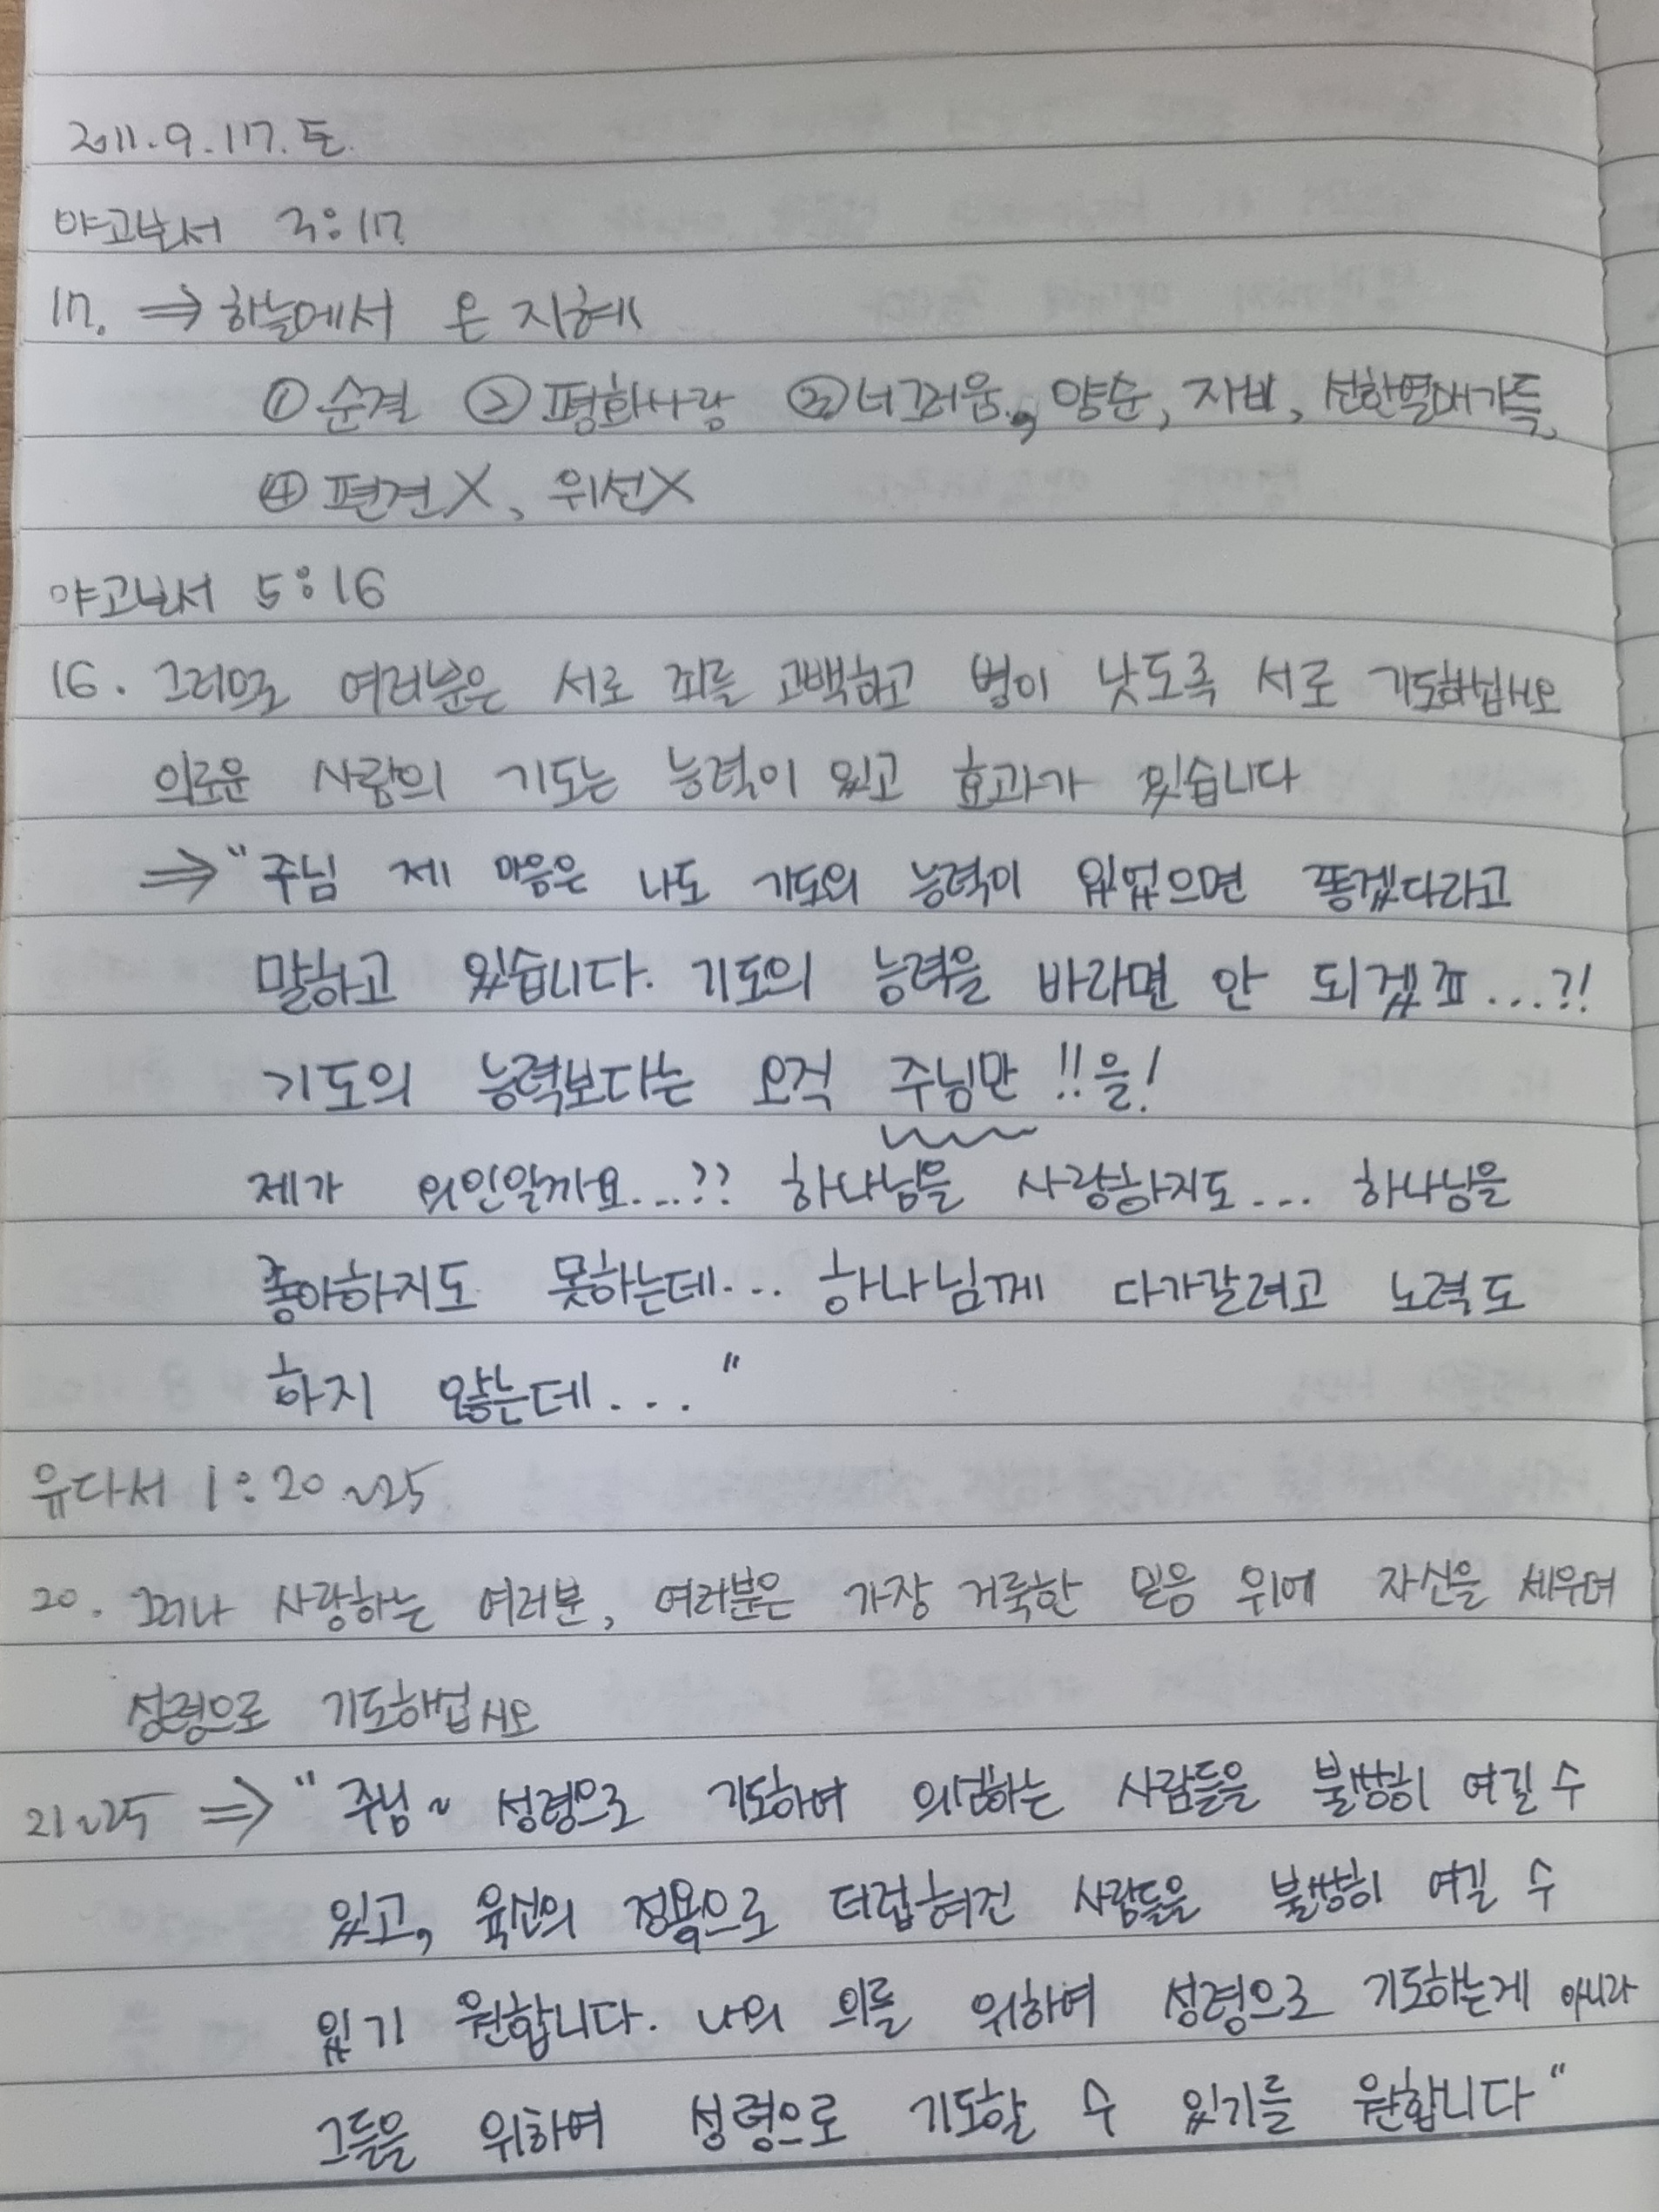 2011.9.17.토
야고보서 3:17
17. ⇒ 하늘에서 온 지혜
① 순결 ② 평화사랑 ③ 너그러움, 양순, 자비, 선한열매가득,
④ 편견X, 위선X
야고보서 5:16
16. 그러므로 여러분은 서로 죄를 고백하고 병이 낫도록 서로 기도하십시오
의로운 사람의 기도는 능력이 있고 효과가 있습니다
⇒ "주님 제 마음은 나도 기도의 능력이 있었으면 좋겠다라고
말하고 있습니다. 기도의 능력을 바라면 안 되겠죠...?!
기도의 능력보다는 오직 주님만!!을!
제가 의인일까요...?? 하나님을 사랑하지도... 하나님을
좋아하지도 못하는데... 하나님께 다가갈려고 노력도
하지 않는데..."
유다서 1:20~25
20. 그러나 사랑하는 여러분, 여러분은 가장 거룩한 믿음 위에 자신을 세우며
성령으로 기도하십시오
21~25 ⇒ "주님~ 성령으로 기도하여 의심하는 사람들을 불쌍히 여길 수
있고, 육신의 정욕으로 더럽혀진 사람들을 불쌍히 여길 수
있기 원합니다. 나의 의를 위하여 성령으로 기도하는게 아니라
그들을 위하여 성령으로 기도할 수 있기를 원합니다"